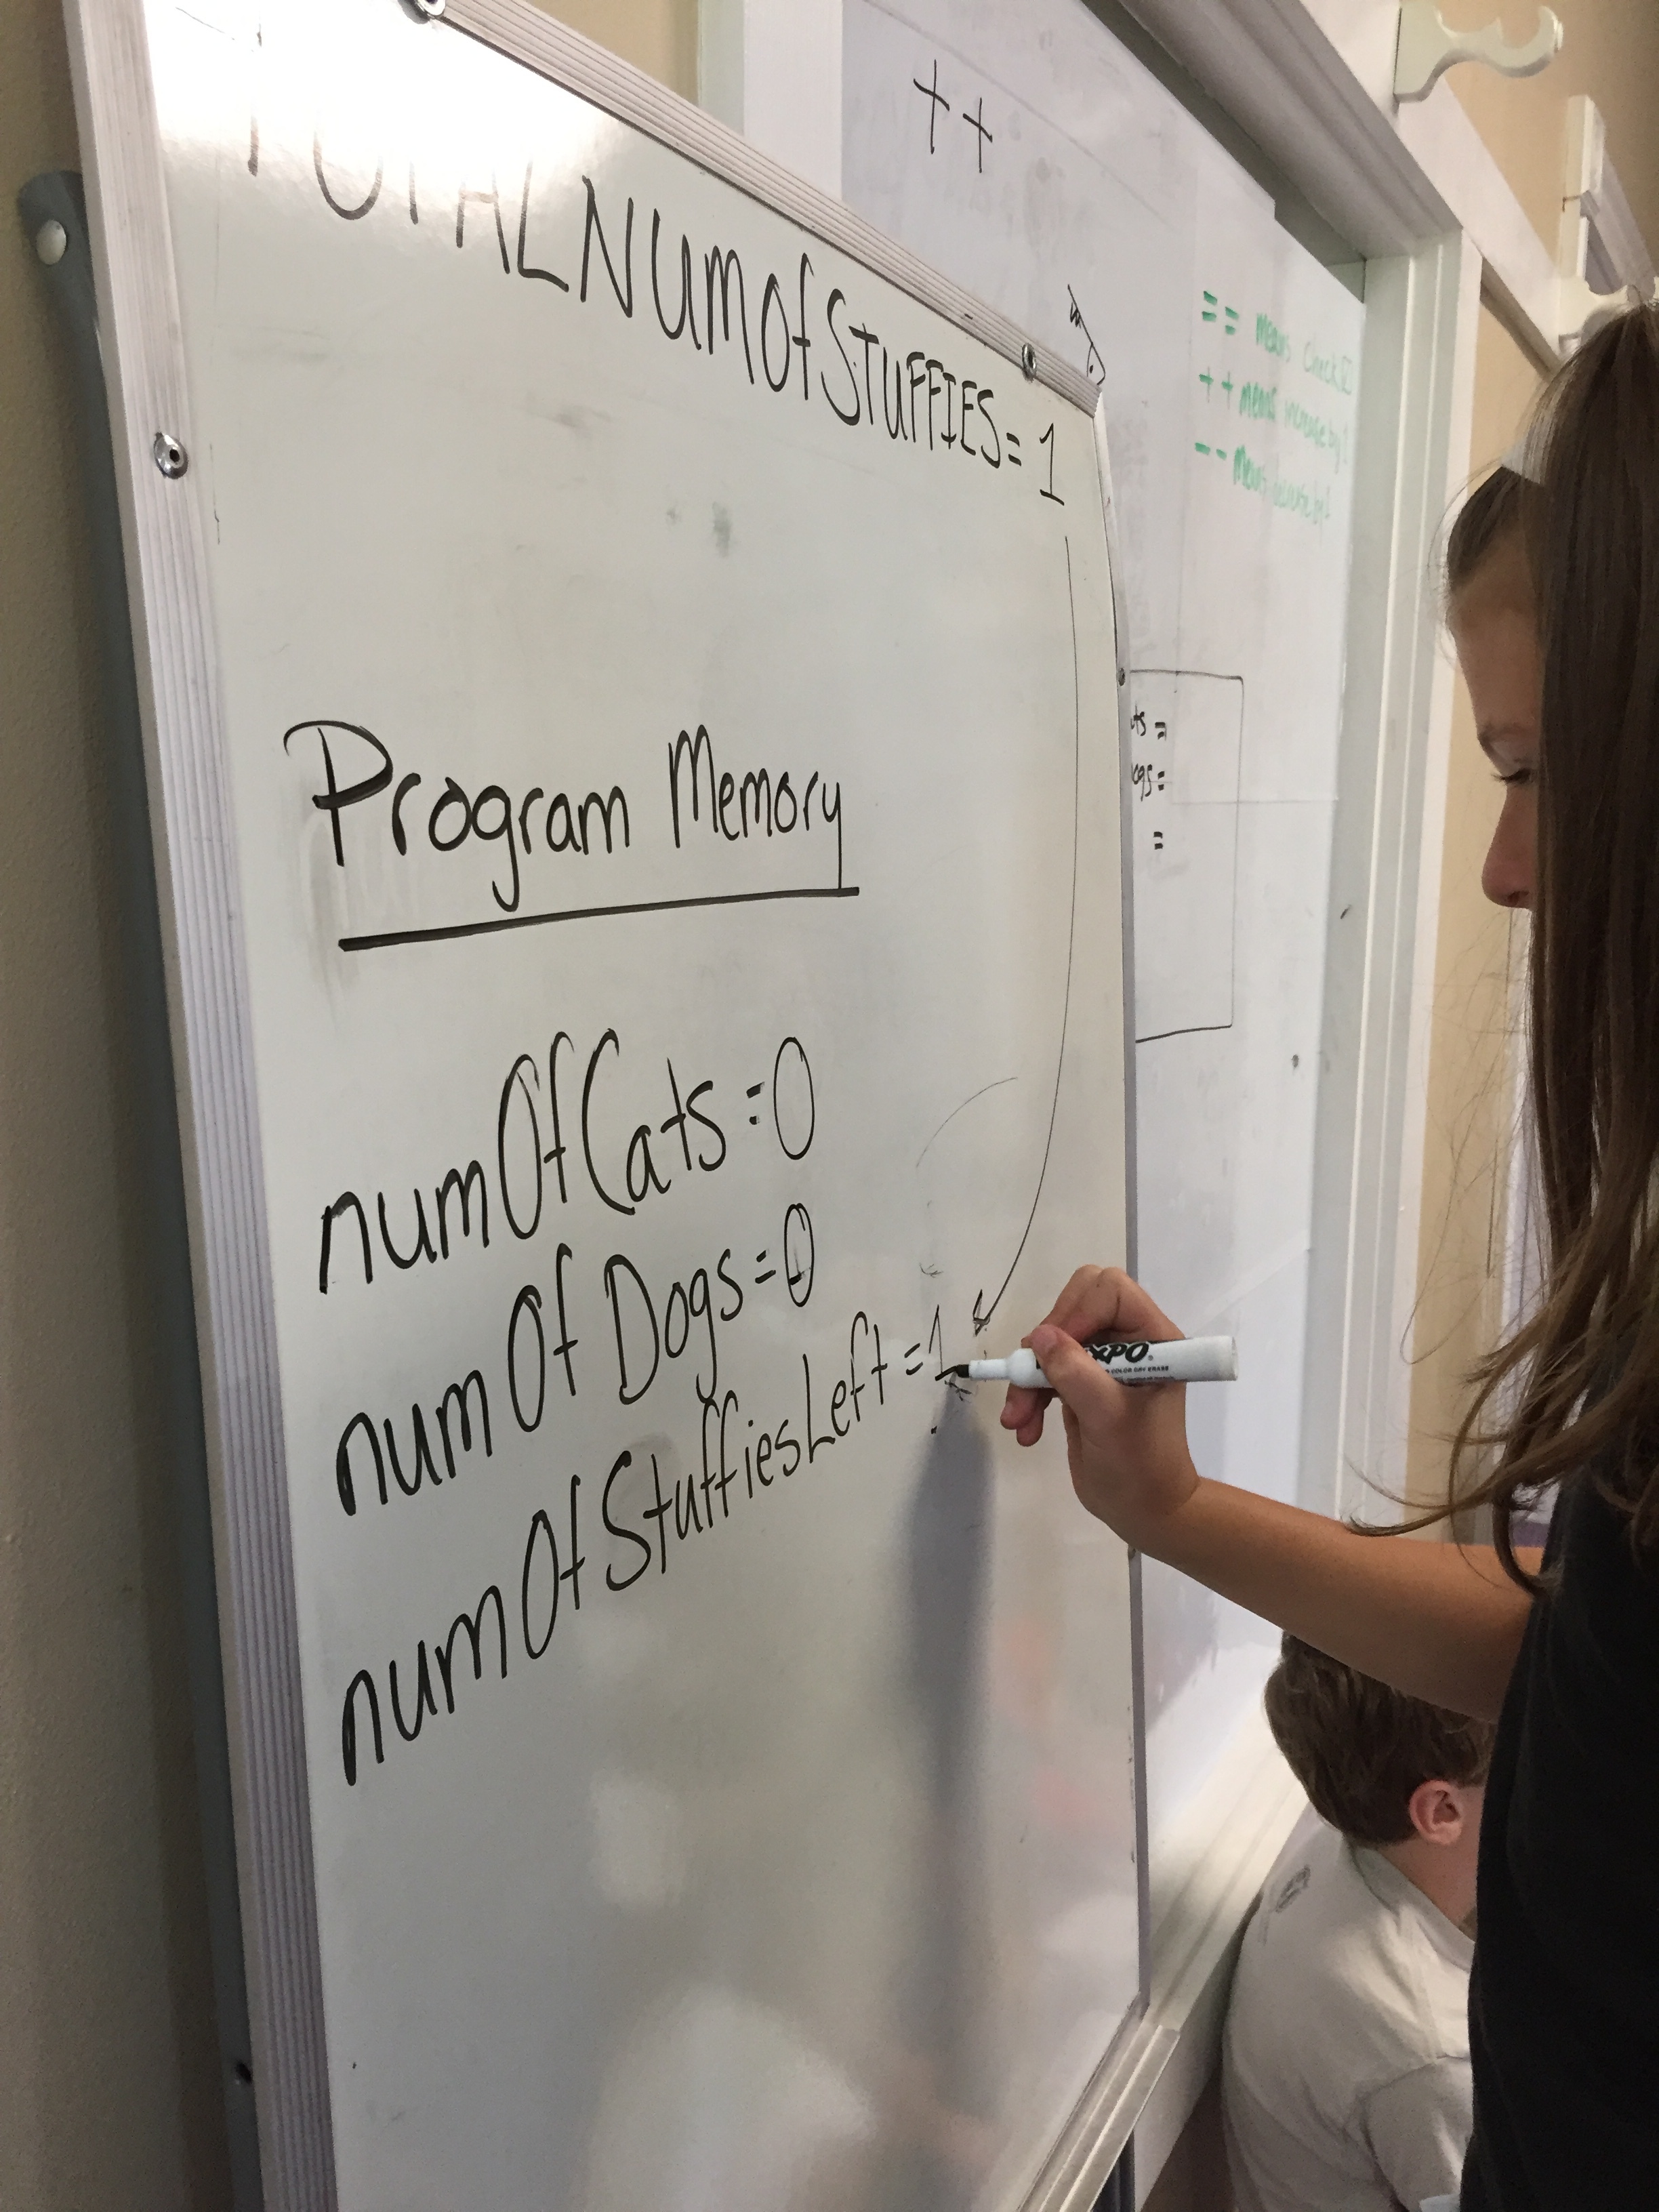 TOTALNumofSTUFFIES= 1
Program Memory
numOfCats=0
numOfDogs=0
numOfStuffiesLeft=1
++
== means check
++ means increase by 1
-- means decrease by 1
=
=
=
EXPO